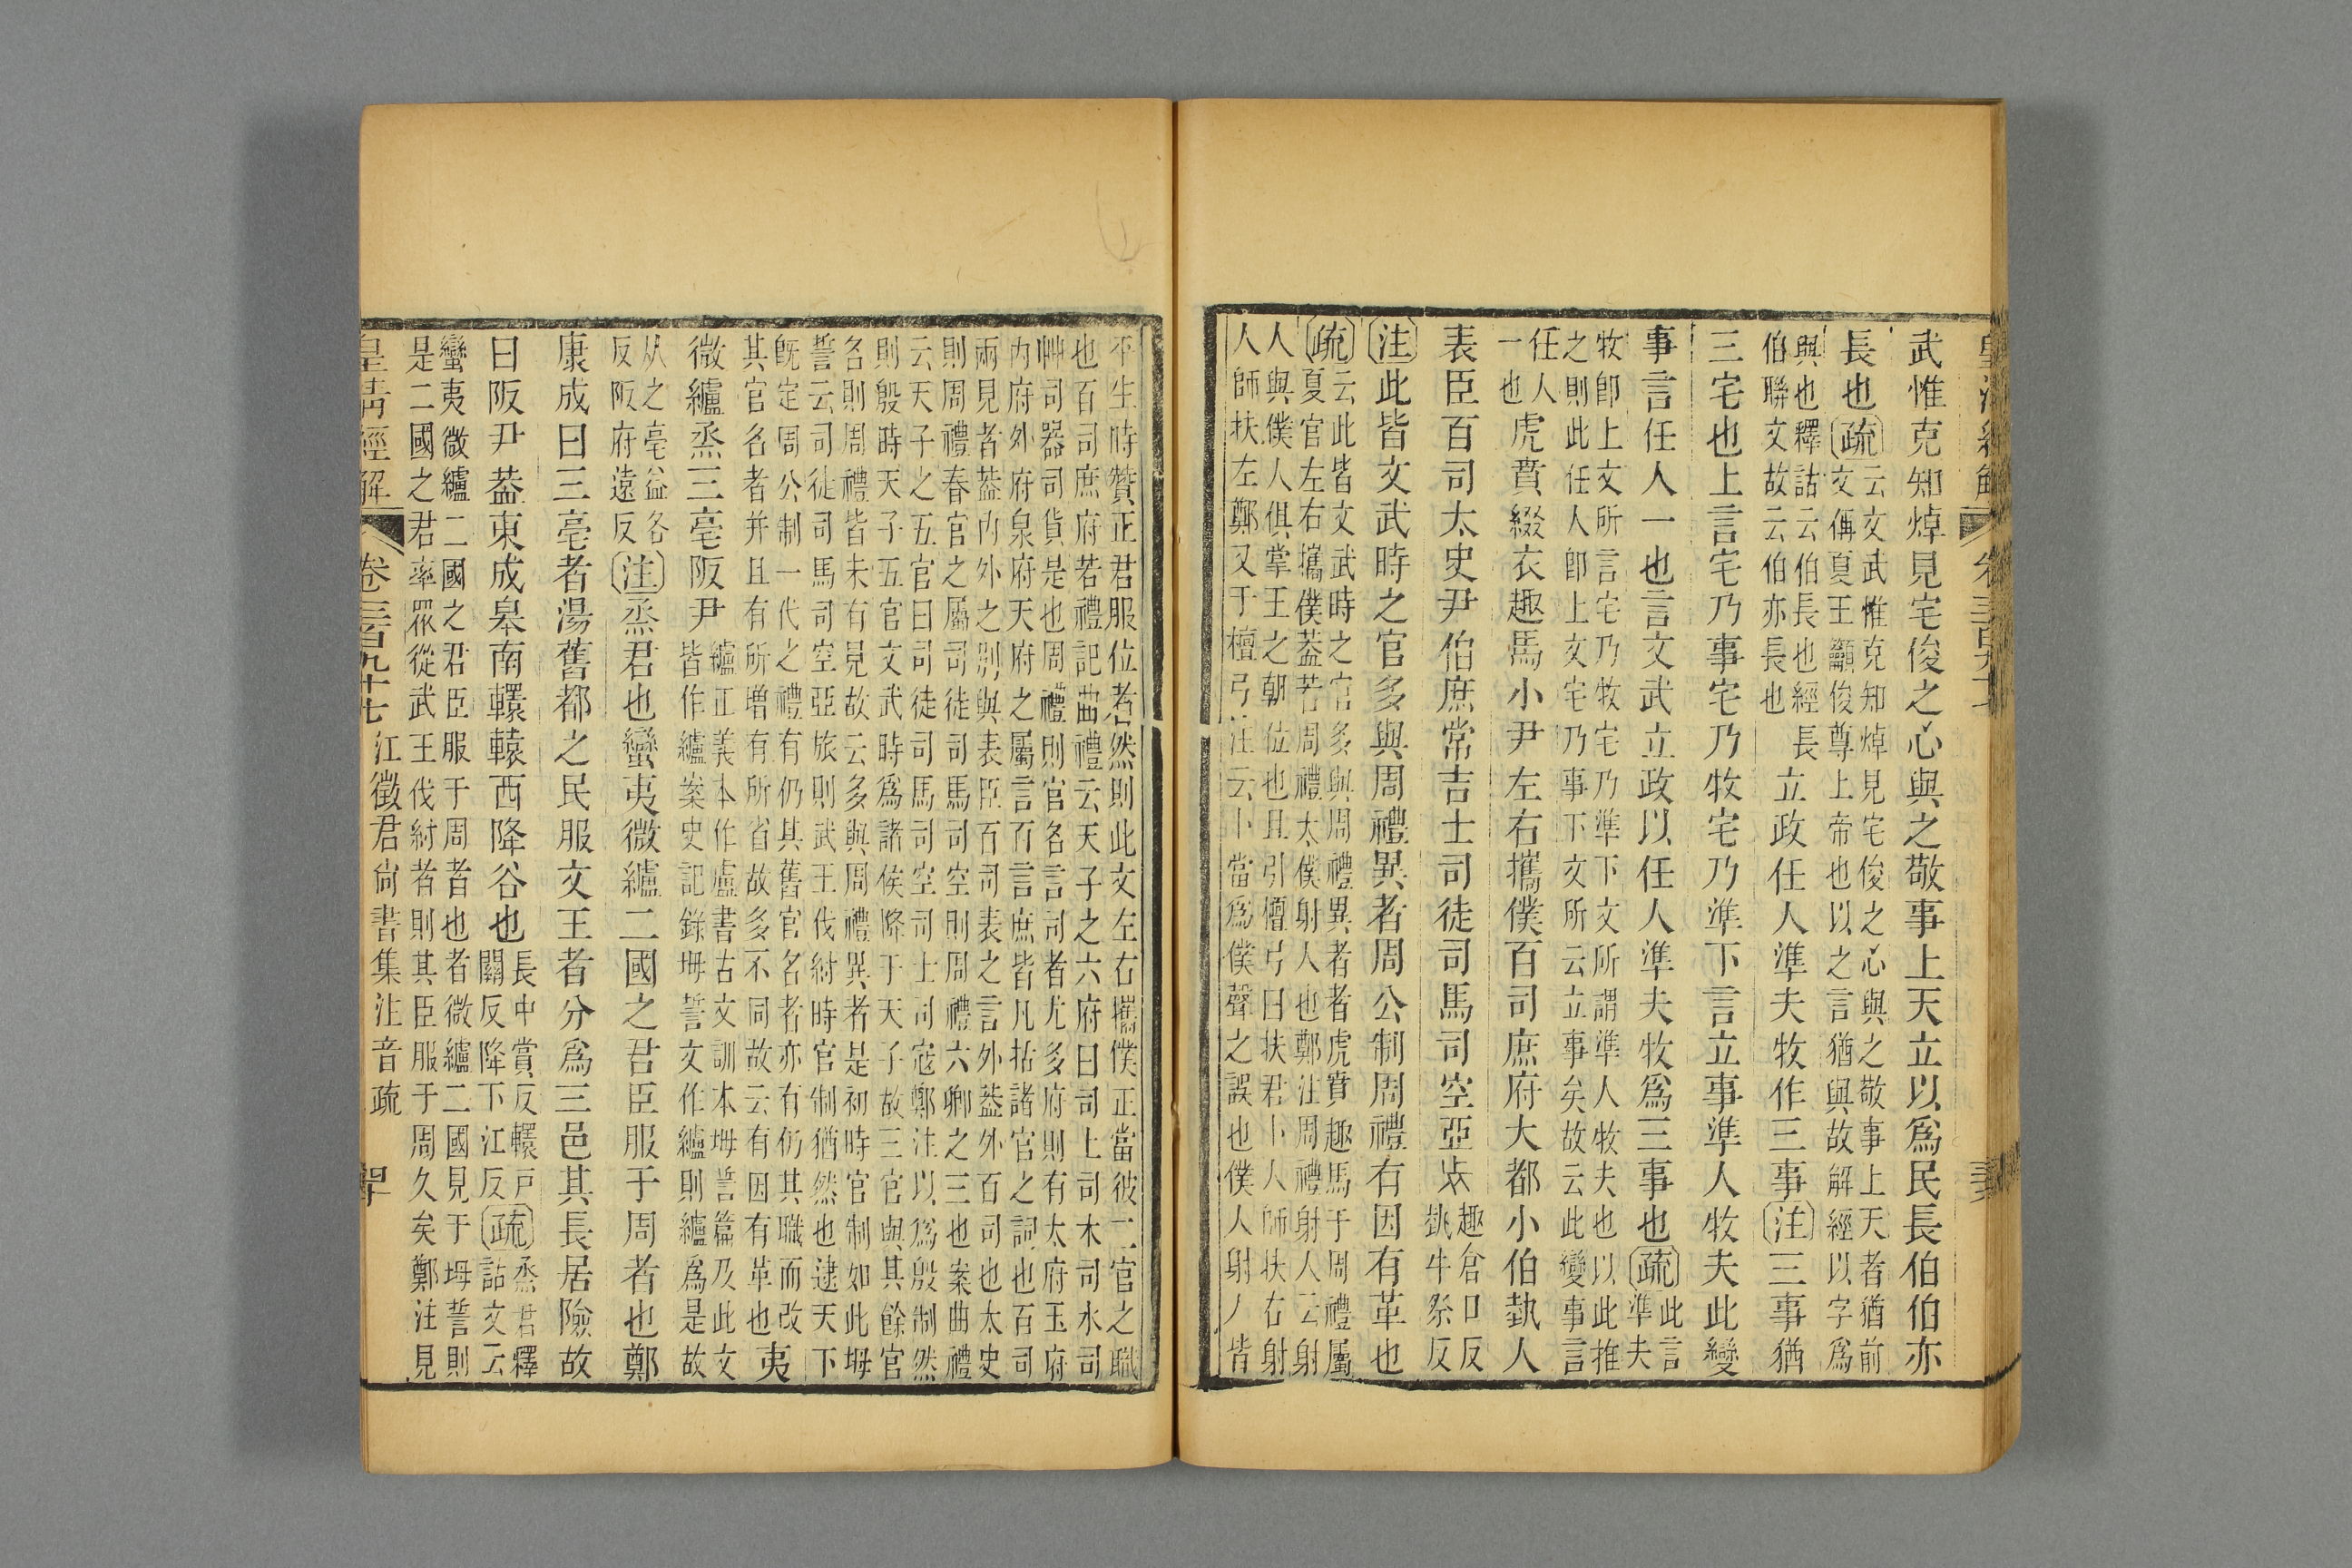 武惟克知焯見宅俊之心與之敬事上天立以爲民長伯伯亦
長也疏
云文武惟克知焯見宅俊之心與之敬事上天者猶前
文偁夏王籲俊尊上帝也以之言猶與故解經以字爲
與也釋詁云伯長也經長
伯聯文故云伯亦長也
立政任人準夫牧作三事注三事猶
三宅也上言宅乃事宅乃牧宅乃準下言立事準人牧夫此變
事言任人一也言文武立政以任人準夫牧爲三事也疏
此言
準夫
牧卽上文所言宅乃牧宅乃準下文所謂準人牧夫也以此推
之則此任人卽上文宅乃事下文所云立事矣故云此變事言
任人
一也
虎賁綴衣趣馬小尹左右攜僕百司庶府大都小伯埶人
表臣百司太史尹伯庶常吉士司徒司馬司空亞
趣倉口反
埶牛祭反
注此皆文武時之官多與周禮異者周公制周禮有因有革也
疏
云此皆文武時之官多與周禮異者者虎賁趣馬于周禮屬
夏官左右攜僕葢若周禮太僕射人也鄭注周禮射人云射
人與僕人俱掌王之朝位也且引檀弓曰扶君卜人師扶右射
人師扶左鄭又于檀弓注云卜當爲僕聲之誤也僕人射人皆
平生時贊正君服位者然則此文左右攜僕正當彼二官之職
也百司庶府若禮記曲禮云天子之六府曰司土司木司水司
艸司器司貨是也周禮則官名言司者尤多府則有太府玉府
內府外府泉府天府之屬言百言庶皆凡括諸官之詞也百司
兩見者葢內外之別與表臣百司表之言外葢外百司也太史
則周禮春官之屬司徒司馬司空則周禮六卿之三也案曲禮
云天子之五官曰司徒司馬司空司士司寇鄭注以爲殷制然
則殷時天子五官文武時爲諸侯降于天子故三官與其餘官
名則周禮皆未有見故云多與周禮異者是初時官制如此坶
誓云司徒司馬司空亞旅則武王伐紂時官制猶然也逮天下
旣定周公制一代之禮有仍其舊官名者亦有仍其職而改
其官名者并且有所增有所省故多不同故云有因有革也
夷
微纑烝三亳阪尹
纑正義本作盧書古文訓本坶誓篇及此文
皆作纑案史記錄坶誓文作纑則纑爲是故
从之亳益各
反阪府遠反
注烝君也蠻夷微纑二國之君臣服于周者也鄭
康成曰三亳者湯舊都之民服文王者分爲三邑其長居險故
曰阪尹葢東成皋南轘轅西降谷也
長中賞反轘戸
關反降下江反
疏
烝君釋
詁文云
蠻夷微纑二國之君臣服于周者也者微纑二國見于坶誓則
是二國之君率眾從武王伐紂者則其臣服于周久矣鄭注見
皇清經解 卷三百九十七 江徵君尙書集注音疏